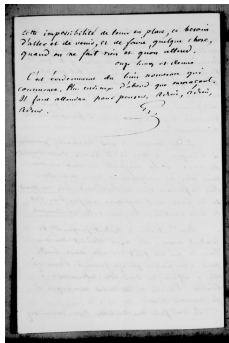 cette impossibilité de tenir en place, ce besoin
d'aller et de venir, et de faire quelque chose,
quand on ne fait rien et qu'on attend.
onze heures et demie
C'est évidemment du bien nouveau qui
commence. Plus curieux d'abord que
Il faut attendre pour penser. Adieu, adieu,
adieu.